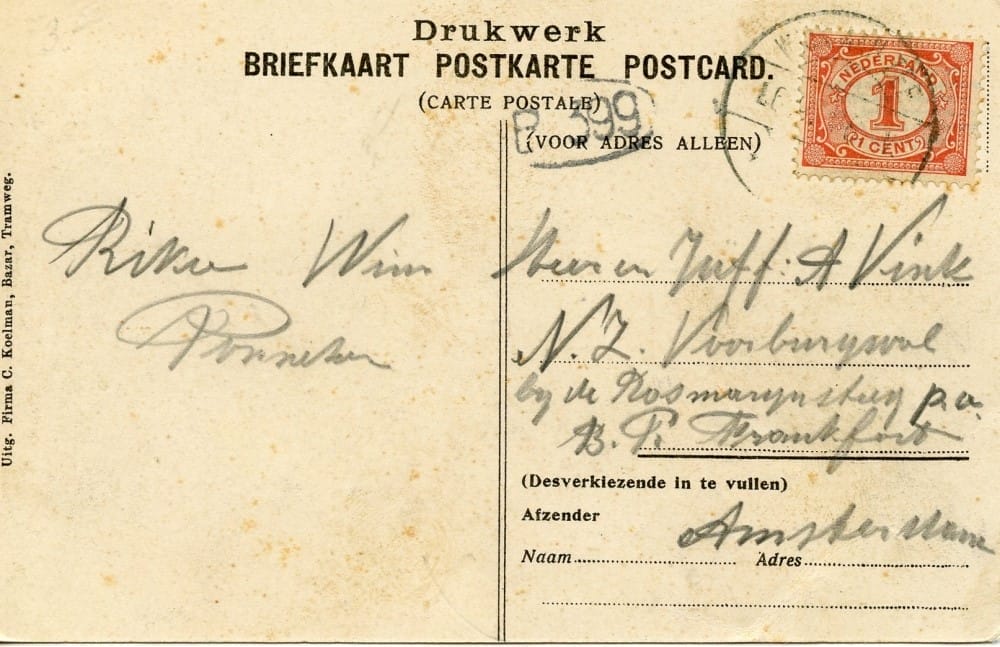 Drukwerk
BRIEFKAART POSTKARTE POSTCARD.
(CARTE POSTALE)
P. 399
(VOOR ADRES ALLEEN)
NEDERLAND
1
1 CENT
Uitg. Firma C. Koelman, Bazar, Tramweg.
Wim
Juff. A Vink
N.Z. Voorburgwal
bij de Rosmarijnsteeg p.a.
B. P. Frankfort
Amsterdam
(Desverkiezende in te vullen)
Afzender
Naam
Adres